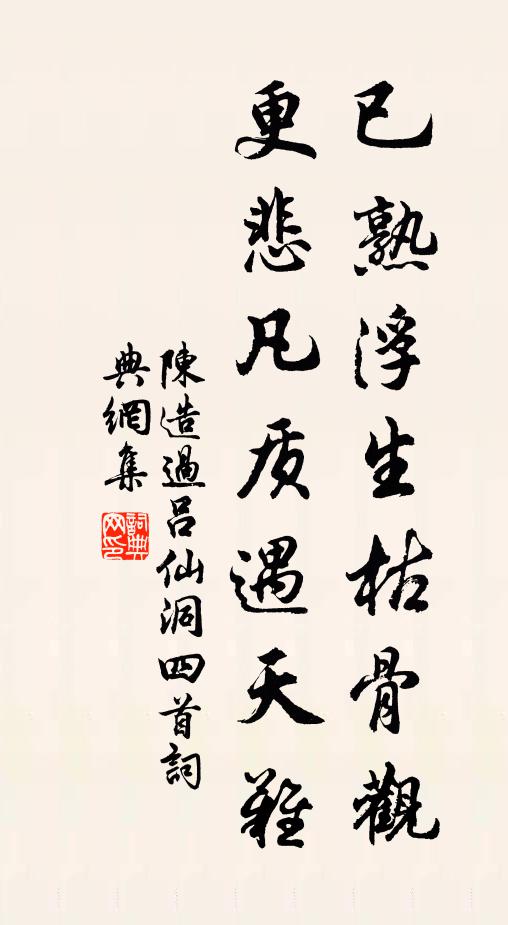 已熟浮生枯骨觀
更悲凡质遇天難
陳造過呂仙洞四首詞
典網集
詞典网印